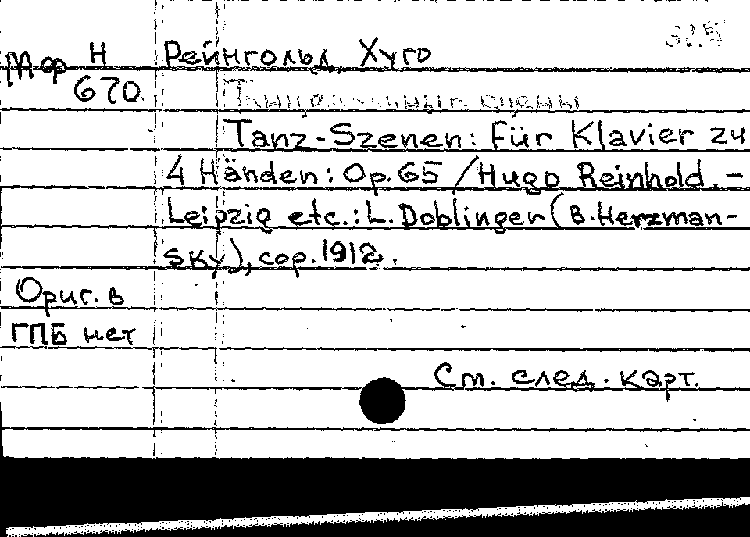 Мф Н Рейнгольд, Хуго
670
Танцевальные сцены
Tanz-Szenen: Für Klavier zu
4 Händen: Op. 65 / Hugo Reinhold. -
Leipzig etc.: L. Doblinger (B. Herzman-
sky), cop. 1912.
Ориг. в
ГПБ нет
См. след. карт.